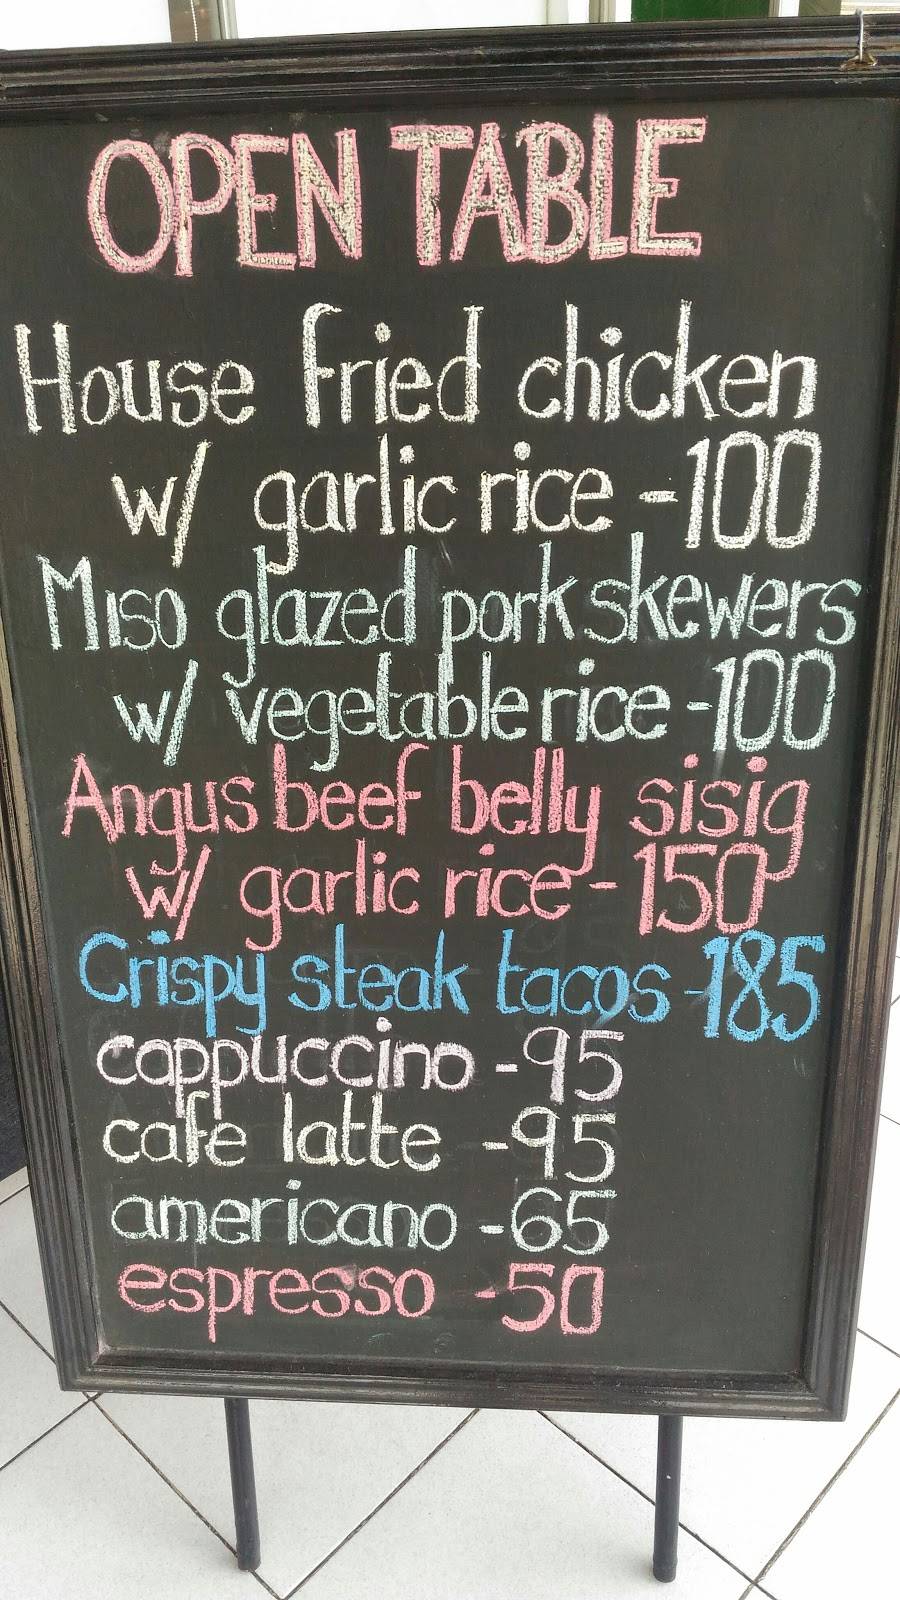 OPEN TABLE
House fried chicken
w/ garlic rice - 100
Miso glazed pork skewers
w/ vegetable rice - 100
Angus beef belly sisig
w/ garlic rice - 150
Crispy steak tacos - 185
cappuccino - 95
cafe latte - 95
americano - 65
espresso - 50